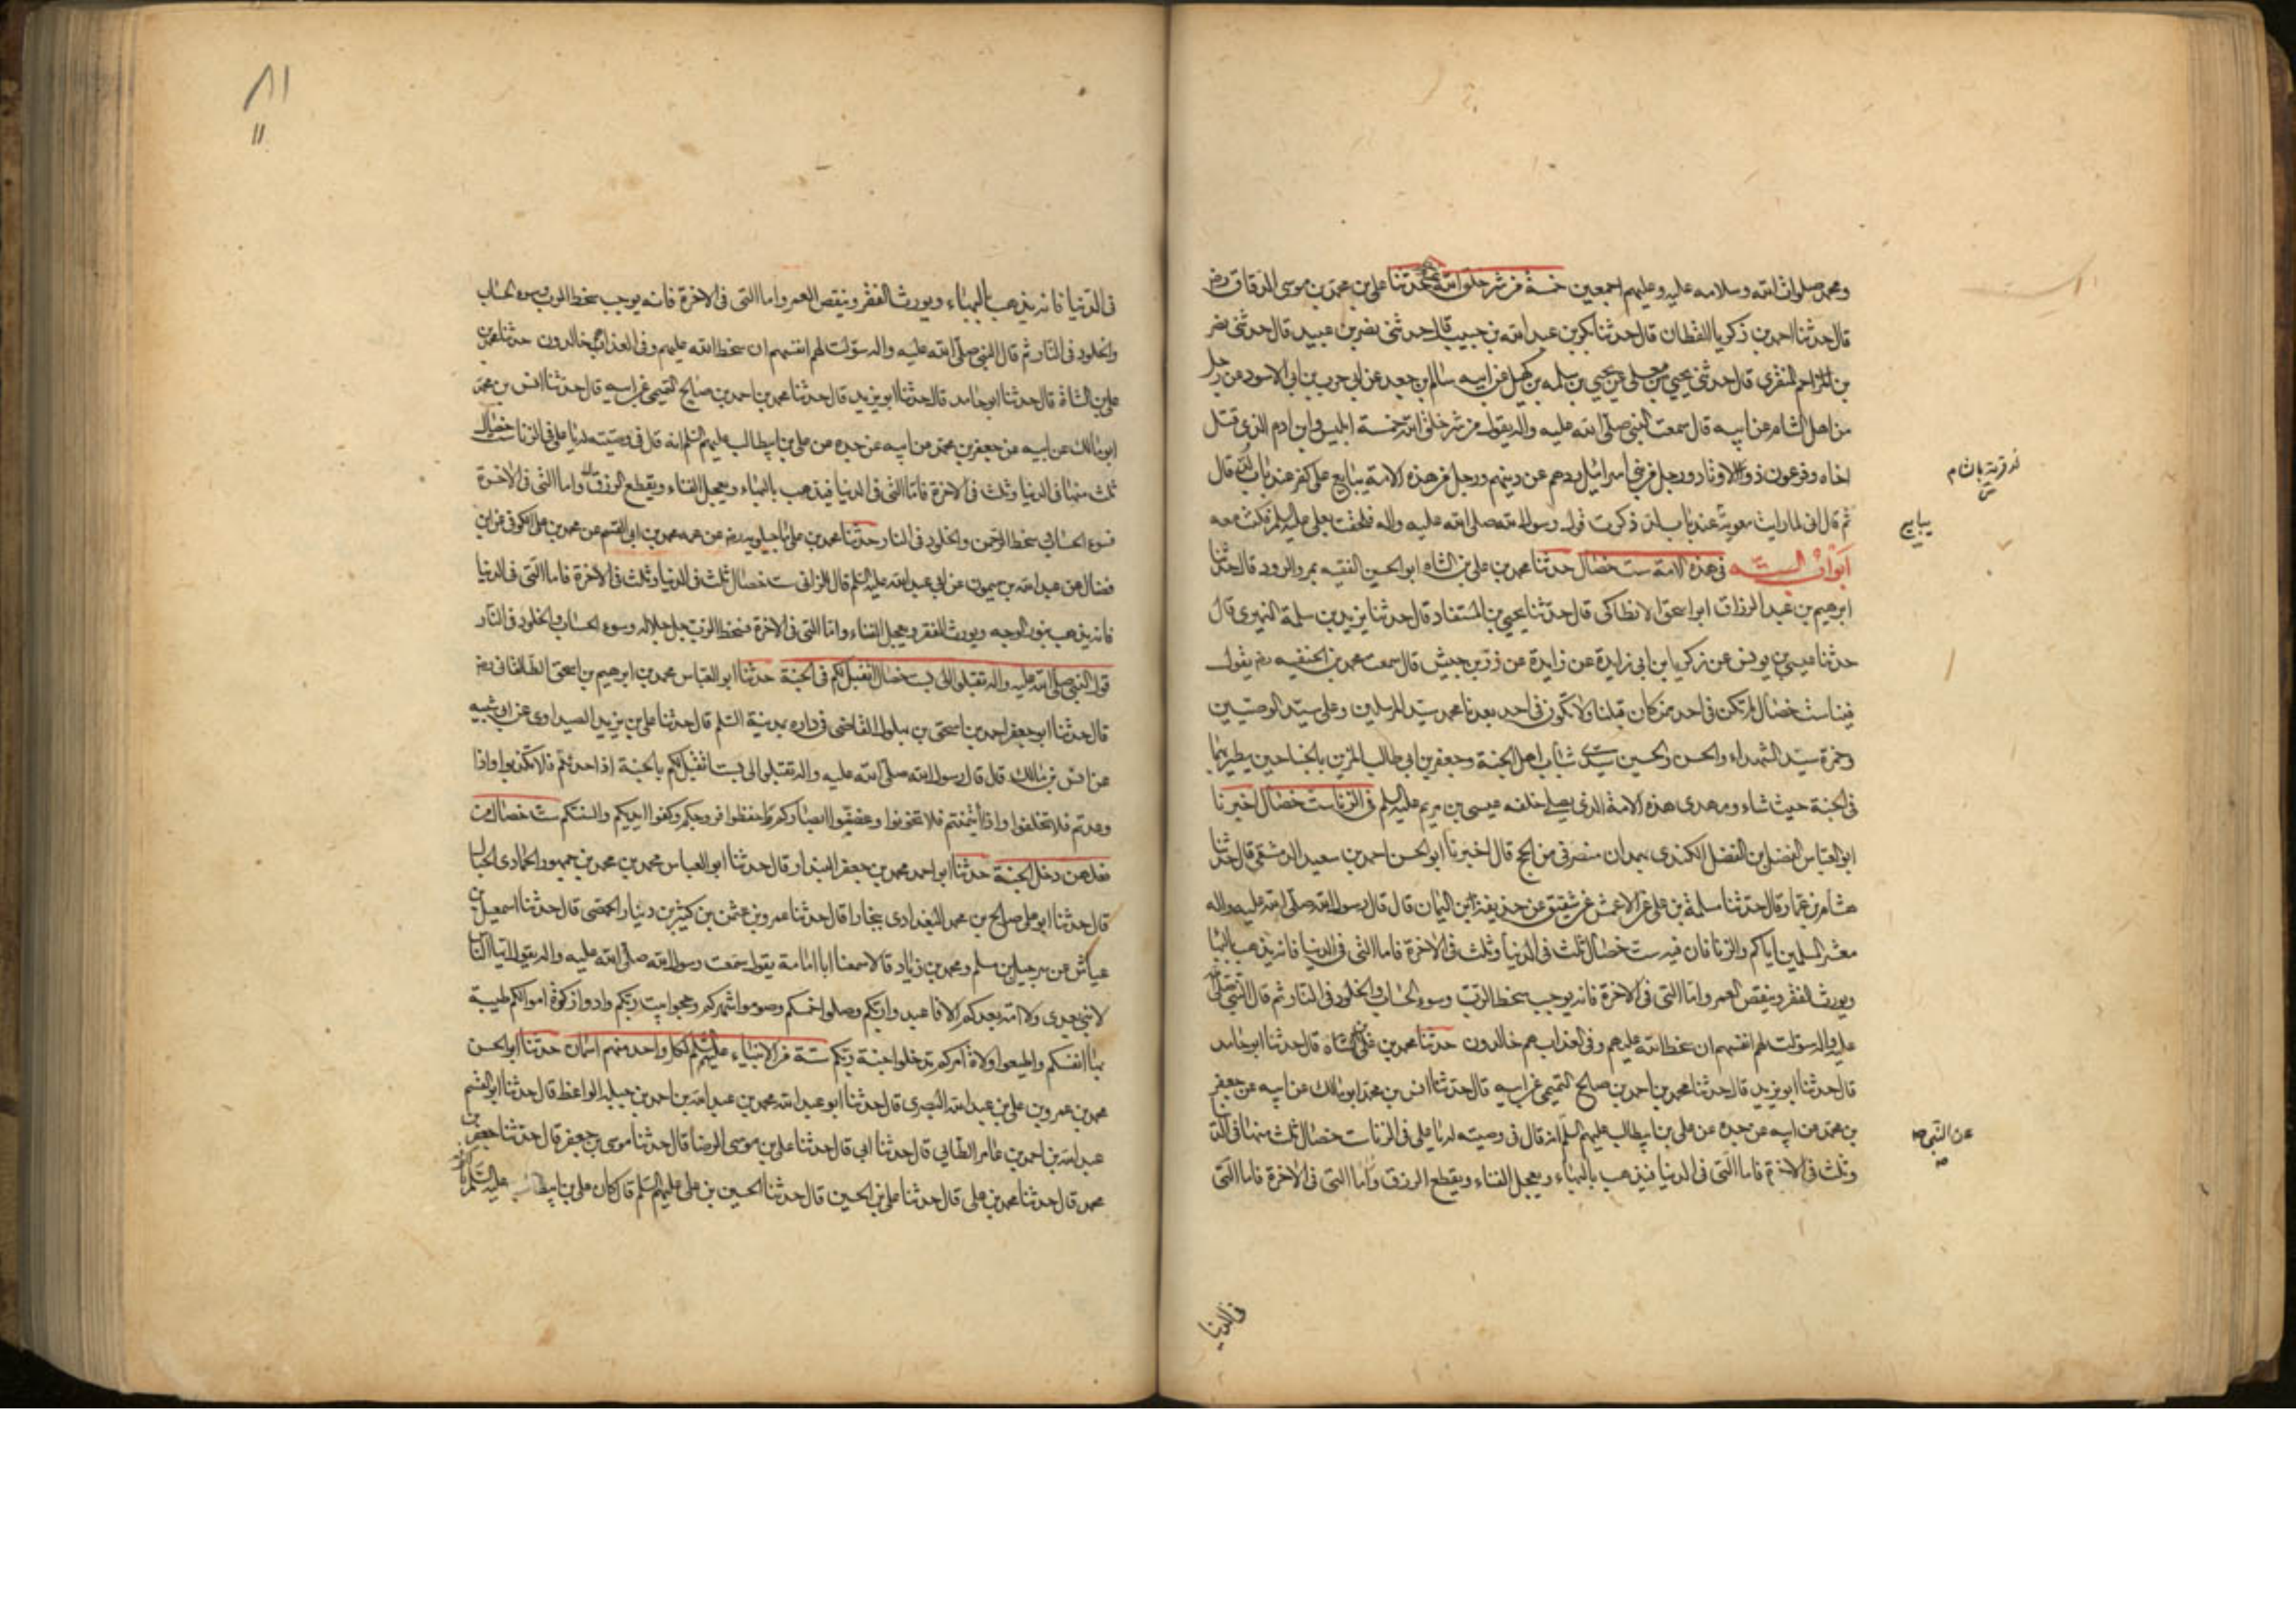 ومحمد صلوات الله وسلامه عليه وعليهم اجمعين خمسة من شر خلق الله حدثنا علي بن محمد بن موسى الدقاق رض
قال حدثنا احمد بن زكريا القطان قال حدثنا بكر بن عبد الله بن حبيب قال حدثني نضر بن عبيد قال حدثني نصر
بن المزاحم المنقري قال حدثني يحيى بن يعلى عن يحيى بن سلمه بن كهيل عن ابيه سالم بن جعد عن ابي حرب بن ابي الاسود عن رجل
من اهل الشام عن ابيه قال سمعت النبي صلى الله عليه واله يقول من شر خلق الله خمسة ابليس وابن ادم الذي قتل
اخاه وفرعون ذو الاوتاد ورجل من بني اسرائيل ردهم عن دينهم ورجل من هذه الامة يبايع على كفر عند باب لد قال
ثم قال اني لما رايت معوية عند باب لد ذكرت قول رسول الله صلى الله عليه واله فلحقت بعلي عليه السلم فكنت معه
ابواب الستة في هذه الامة ست خصال حدثنا محمد بن علي بن الشاه ابو الحسين الفقيه بمرو الرود قال حدثنا
ابرهيم بن عبد الرزاق ابو اسحق الانطاكي قال حدثنا يحيى بن المستفاد قال حدثنا يزيد بن سلمة النميري قال
حدثنا عيسى بن يونس عن زكريا بن ابي زايدة عن زايدة عن زر بن حبيش قال سمعت محمد بن الحنفيه رض يقول
فينا ست خصال لم تكن في احد ممن كان قبلنا ولا تكون في احد بعدنا محمد سيد المرسلين وعلي سيد الوصيين
وحمزة سيد الشهداء والحسن والحسين سيدي شباب اهل الجنة وجعفر بن ابي طالب المزين بالجناحين يطير بهما
في الجنة حيث شاء ومهدي هذه الامة الذي يصلي خلفه عيسى بن مريم عليه السلم في الزنا ست خصال اخبرنا
ابو العباس الفضل بن الفضل الكندي بهمدان منصرفي من الحج قال اخبرنا ابو الحسن احمد بن سعيد الدمشقي قال حدثنا
هشام بن عمار قال حدثنا سلمة بن علي عن الاعمش عن شقيق عن حذيفة ابن اليمان قال قال رسول الله صلى الله عليه واله
معشر المسلمين اياكم والزنا فان فيه ست خصال ثلث في الدنيا وثلث في الاخرة فاما التي في الدنيا فانه يذهب بالبهاء
ويورث الفقر وينقص العمر واما التي في الاخرة فانه يوجب سخط الرب وسوء الحساب والخلود في النار ثم قال النبي صلى الله
عليه واله سولت لهم انفسهم ان سخط الله عليهم وفي العذاب هم خالدون حدثنا محمد بن علي بن الشاه قال حدثنا ابو حامد
قال حدثنا ابو يزيد قال حدثنا محمد بن احمد بن صالح التميمي عن ابيه قال حدثنا انس بن محمد ابو مالك عن ابيه عن جعفر
بن محمد عن ابيه عن جده عن علي بن ابيطالب عليهم السلم انه قال في وصيته له يا علي في الزنا ست خصال ثلث منها في الدنيا
وثلث في الاخرة فاما التي في الدنيا فيذهب بالبهاء ويعجل الفناء ويقطع الرزق واما التي في الاخرة فاما التي
لد قرية بالشام
يبايع
عن النبي ص
في الدنيا
في الدنيا فانه يذهب بالبهاء ويورث الفقر وينقص العمر واما التي في الاخرة فانه يوجب سخط الرب وسوء الحساب
والخلود في النار ثم قال النبي صلى الله عليه واله سولت لهم انفسهم ان سخط الله عليهم وفي العذاب هم خالدون حدثنا محمد بن
علي بن الشاة قال حدثنا ابو حامد قال حدثنا ابو يزيد قال حدثنا محمد بن احمد بن صالح التميمي عن ابيه قال حدثنا انس بن محمد
ابو مالك عن ابيه عن جعفر بن محمد عن ابيه عن جده عن علي بن ابيطالب عليهم السلم انه قال في وصيته له يا علي في الزنا ست خصال
ثلث منها في الدنيا وثلث في الاخرة فاما التي في الدنيا فيذهب بالبهاء ويعجل الفناء ويقطع الرزق واما التي في الاخرة
فسوء الحساب وسخط الرحمن والخلود في النار حدثنا محمد بن علي ماجيلويه رض عن عمه محمد بن ابي القسم عن محمد بن علي الكوفي عن ابن
فضال عن عبد الله بن ميمون عن ابي عبد الله عليه السلم قال للزاني ست خصال ثلث في الدنيا وثلث في الاخرة فاما التي في الدنيا
فانه يذهب بنور الوجه ويورث الفقر ويعجل الفناء واما التي في الاخرة فسخط الرب جل جلاله وسوء الحساب والخلود في النار
قول النبي صلى الله عليه واله تقبلوا الي بست خصال اتقبل لكم في الجنة حدثنا ابو العباس محمد بن ابرهيم بن اسحق الطالقاني رض
قال حدثنا ابو جعفر احمد بن اسحق بن بهلول القاضي في داره بمدينة السلم قال حدثنا علي بن يزيد الصيداوي عن ابي شيبه
عن انس بن مالك قال قال رسول الله صلى الله عليه واله تقبلوا الي بست اتقبل لكم بالجنة اذا حدثتم فلا تكذبوا واذا
وعدتم فلا تخلفوا واذا ائتمنتم فلا تخونوا وغضوا ابصاركم واحفظوا فروجكم وكفوا ايديكم والسنتكم ست خصال من
فعلهن دخل الجنة حدثنا ابو احمد محمد بن جعفر البندار قال حدثنا ابو العباس محمد بن محمد بن جمهور الحمادي
قال حدثنا ابو علي صالح بن محمد البغدادي ببخارا قال حدثنا عمرو بن عثمن بن كثير بن دينار الحمصي قال حدثنا اسمعيل بن
عياش عن شرجيل بن مسلم ومحمد بن زياد قالا سمعنا ابا امامة يقول سمعت رسول الله صلى الله عليه واله يقول ايها الناس
لا نبي بعدي ولا امة بعدكم الا فاعبدوا ربكم وصلوا خمسكم وصوموا شهركم وحجوا بيت ربكم وادوا زكوة اموالكم طيبة
بها انفسكم واطيعوا ولاة امركم تدخلوا جنة ربكم ستة من الانبياء عليهم السلم لكل واحد منهم اسمان حدثنا ابو الحسن
محمد بن عمرو بن علي بن عبد الله البصري قال حدثنا ابو عبد الله محمد بن عبد الله بن احمد بن جبله الواعظ قال حدثنا ابو القسم
عبد الله بن احمد بن عامر الطائي قال حدثنا ابي قال حدثنا علي بن موسى الرضا قال حدثنا موسى بن جعفر قال حدثنا جعفر بن
محمد قال حدثنا محمد بن علي قال حدثنا علي بن الحسين قال حدثنا الحسين بن علي عليهم السلم قال كان علي بن ابيطالب عليه السلم